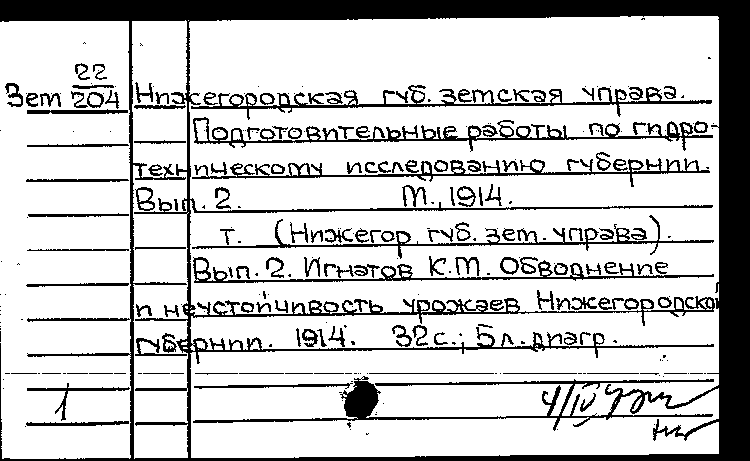 Зем 22/204 Нижегородская губ. земская управа.
Подготовительные работы по гидро-
техническому исследованию губернии.
Вып. 2. М., 1914.
т. (Нижегор. губ. зем. управа).
Вып. 2. Игнатов К.М. Обводнение
и неустойчивость урожаев Нижегородской
губернии. 1914. 32 с.; 5 л. диагр.
1 4/IV